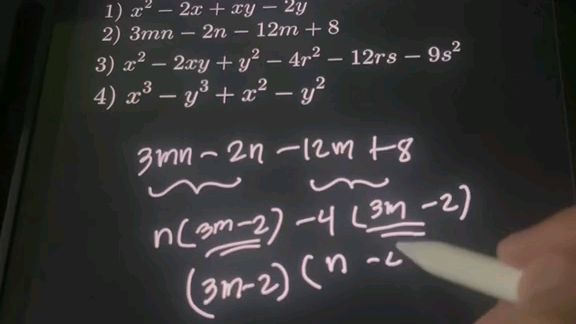 1) x² − 2x + xy − 2y
2) 3mn − 2n − 12m + 8
3) x² − 2xy + y² − 4r² − 12rs − 9s²
4) x³ − y³ + x² − y²
3mn − 2n − 12m + 8
n(3m−2) −4 (3m −2)
(3m−2) (n −